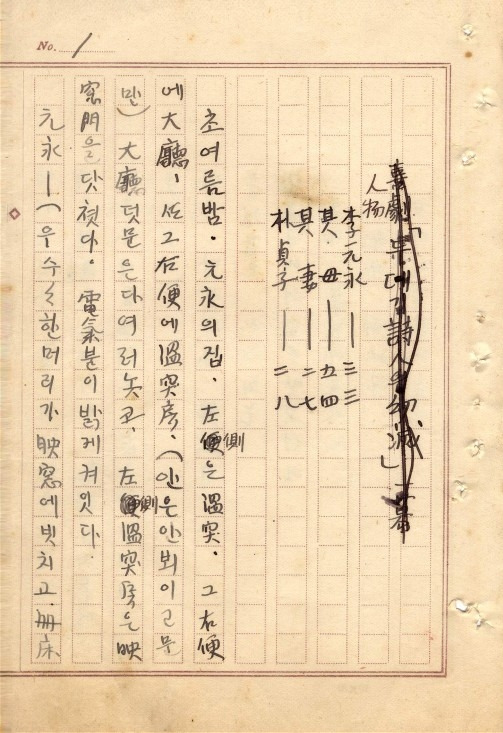 No. 1
喜劇「두데기 詩人의 幻滅」一幕
人物
李元永 — 三三
其 母 — 五四
其 妻 — 二七
朴貞子 — 二八
초여름밤. 元永의 집. 左側은 溫突. 그 右便
에 大廳, 또 그 右便에 溫突房. (안은 안뵈이고 문
만) 大廳 덧문은 다 여러놋코. 左側 溫突房은 映
窓門을 닷첫다. 電氣불이 밝게 켜 잇다.
元永 — (우수수한 머리가 映窓에 빗치고 冊床